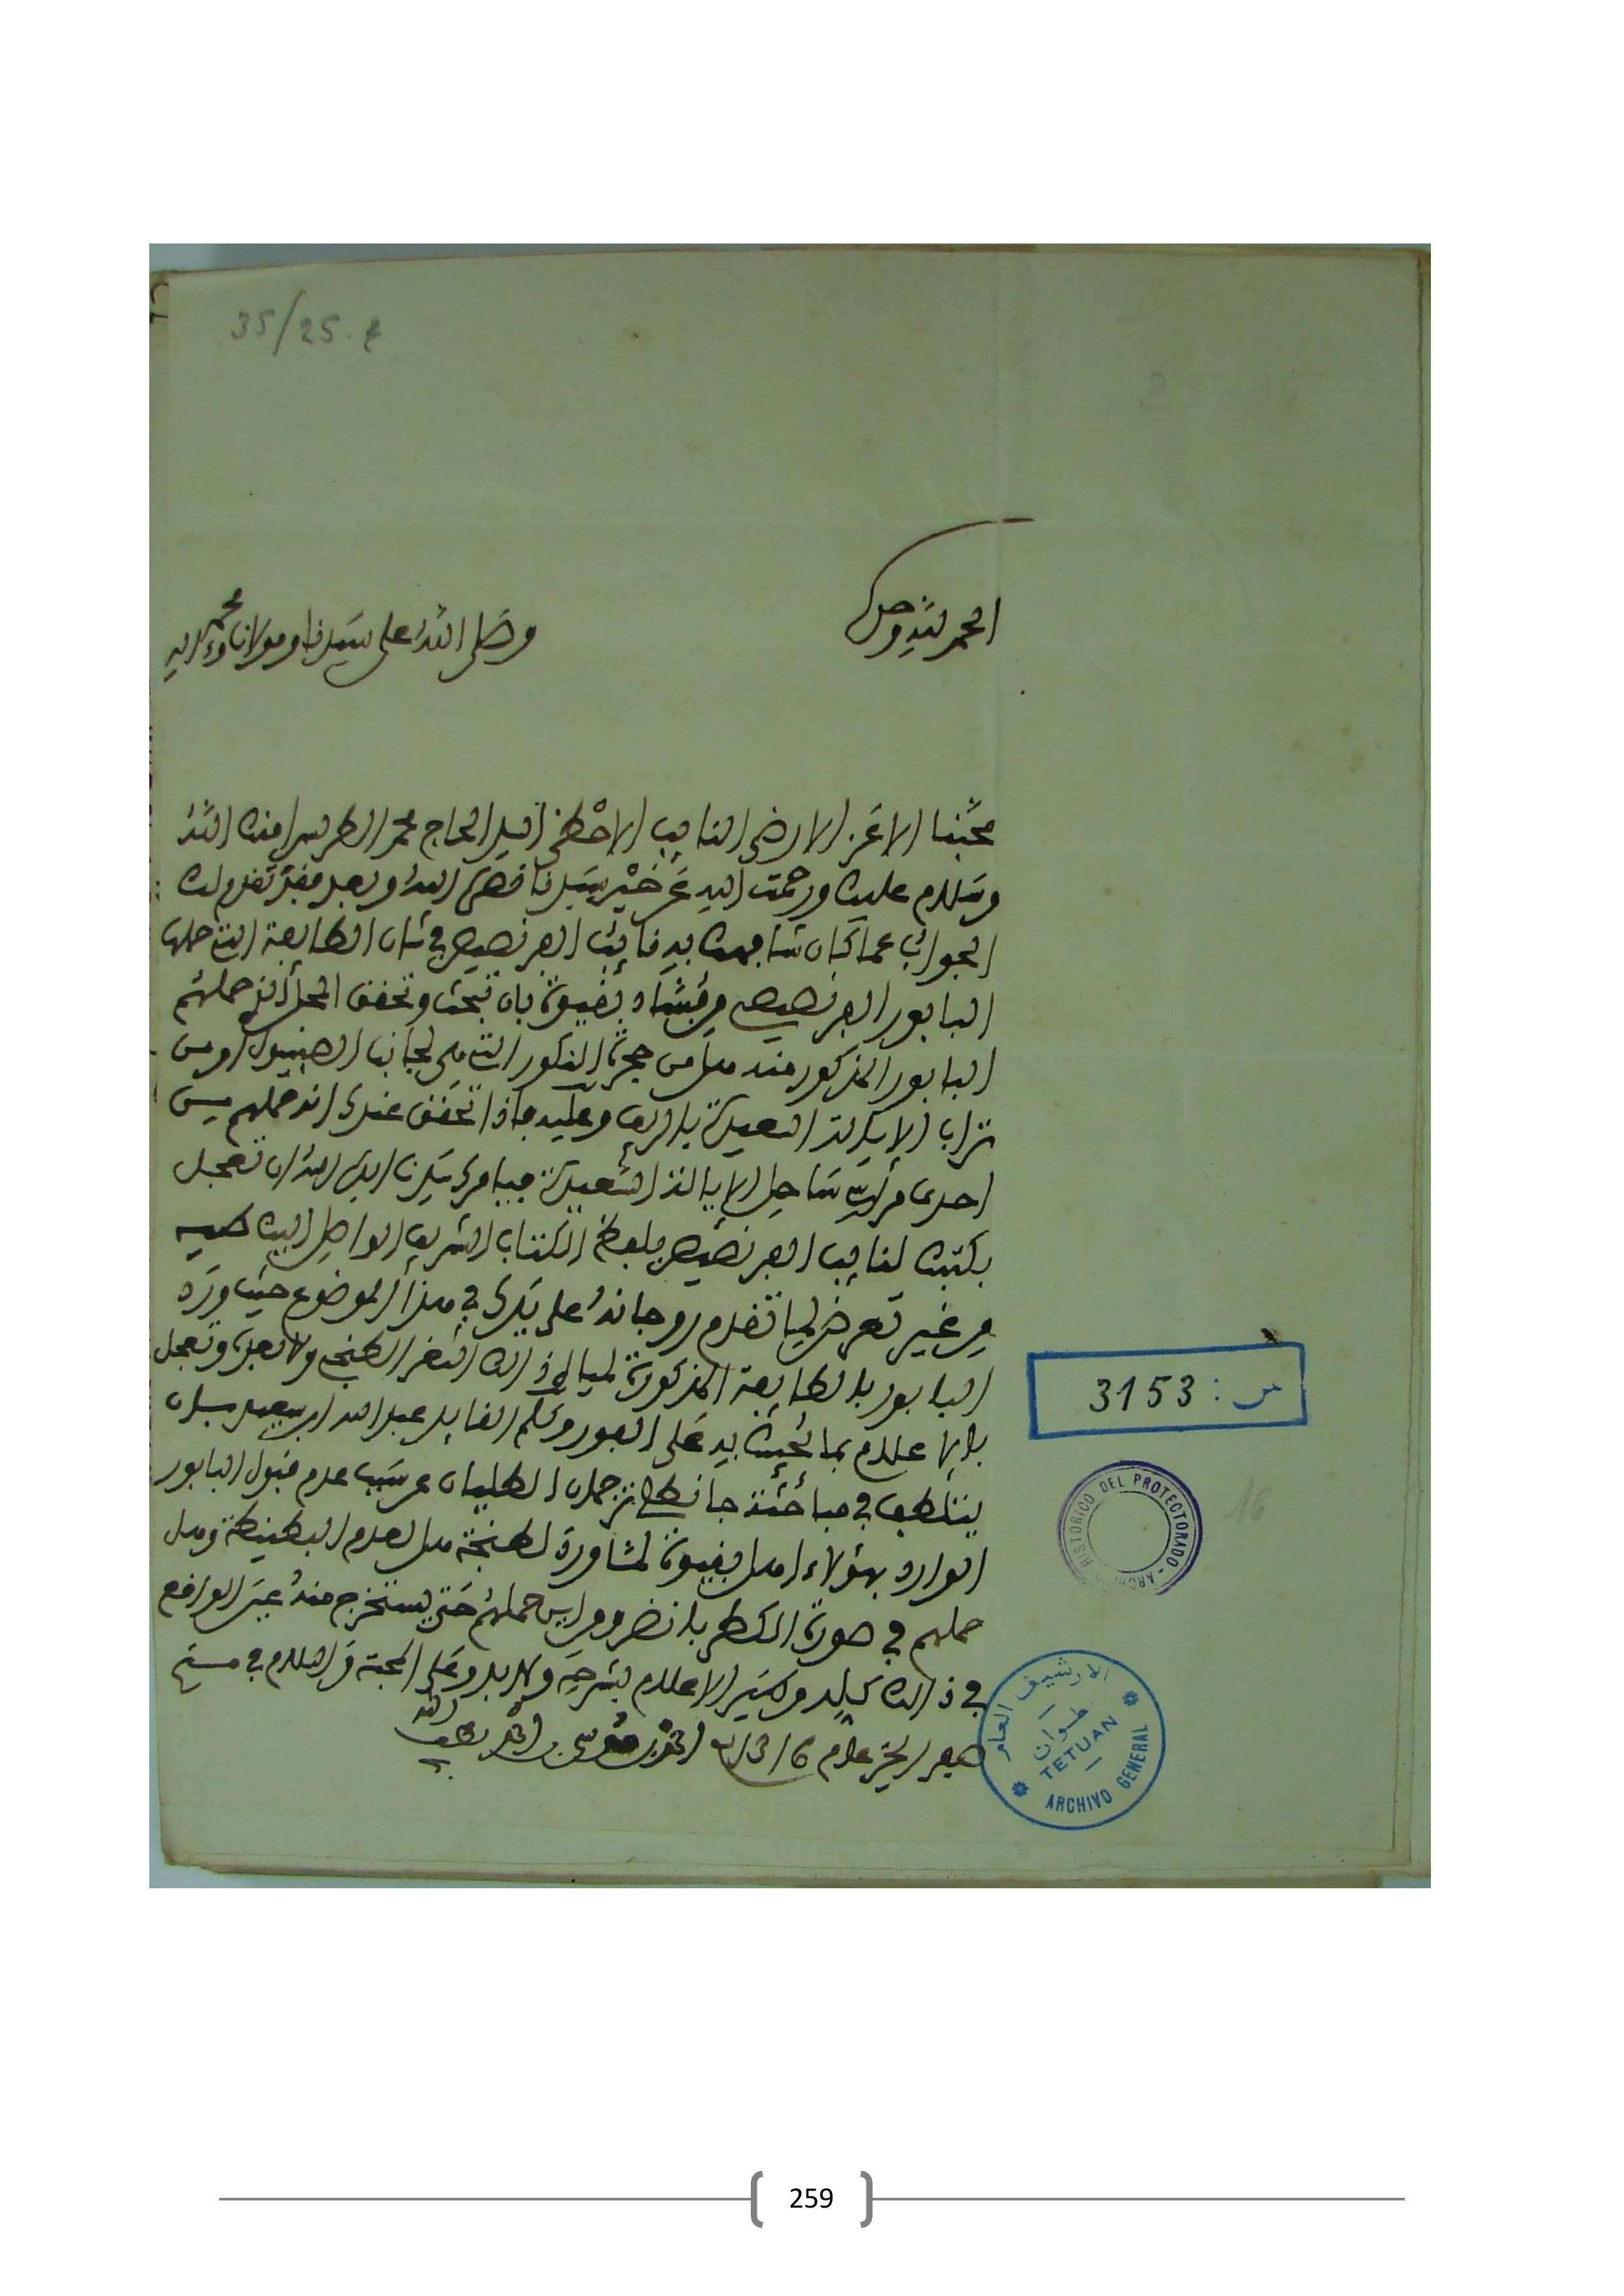 35/25. ع
الحمد لله وحده
وصلى الله على سيدنا ومولانا محمد وءاله
محبنا الاعز الارضى النايب الاحظى السيد الحاج محمد الطريس امنك الله
وسلام عليك ورحمت الله عن خير سيدنا نصره الله وبعد فقد تقدم لك
الجواب عما كان شابهك به نائب الفرنصيص في شان الطايفة التي حملها
البابور الفرنصيص بان تبحث وتحقق المحل الذي حملهم
البابور المذكور منه هل من حجرة النكور التي هي لجانب الصبنيول او من
تراب الايالة السعيدة بالريف وعليه فاذا تحقق عندك انه حملهم من
احدى مراسي ساحل الايالة السعيدة فيامرك سيدنا ايده الله ان تعجل
بكتبك لنايب الفرنصيص بلفظ الكتاب الشريف الواصل اليك طيه
من غير تعرض لما تقدم رواجانه على يدك في هذا الموضوع حيث ورد
البابور بالطايفة المذكورة لميا لي ذالك الثغر الطنجي ولا بد وتعجل
بالاعلام بما تجيبك به على الفور وكلم القايد عبد الله ابن سعيد بان
يتلطف في مباحثة ترجمان الطليان عن سبب عدم قبول البابور
الوارد بهؤلاء اهل بقيوة لمشاورة لطنجة هل لعدم البطينطة وهل
حملهم في صورة ومن اين حملهم حتى يستخرج منه عين الواقع
في ذالك كله الاعلام بشرحه ولا بد وعلى المحبة والسلام في
صفر الخير عام 1316 احمد بن موسى بن احمد لطف الله به
س: 3153
ARCHIVO HISTORICO DEL PROTECTORADO
16
الارشيف العام
تطوان
TETUAN
ARCHIVO GENERAL
259